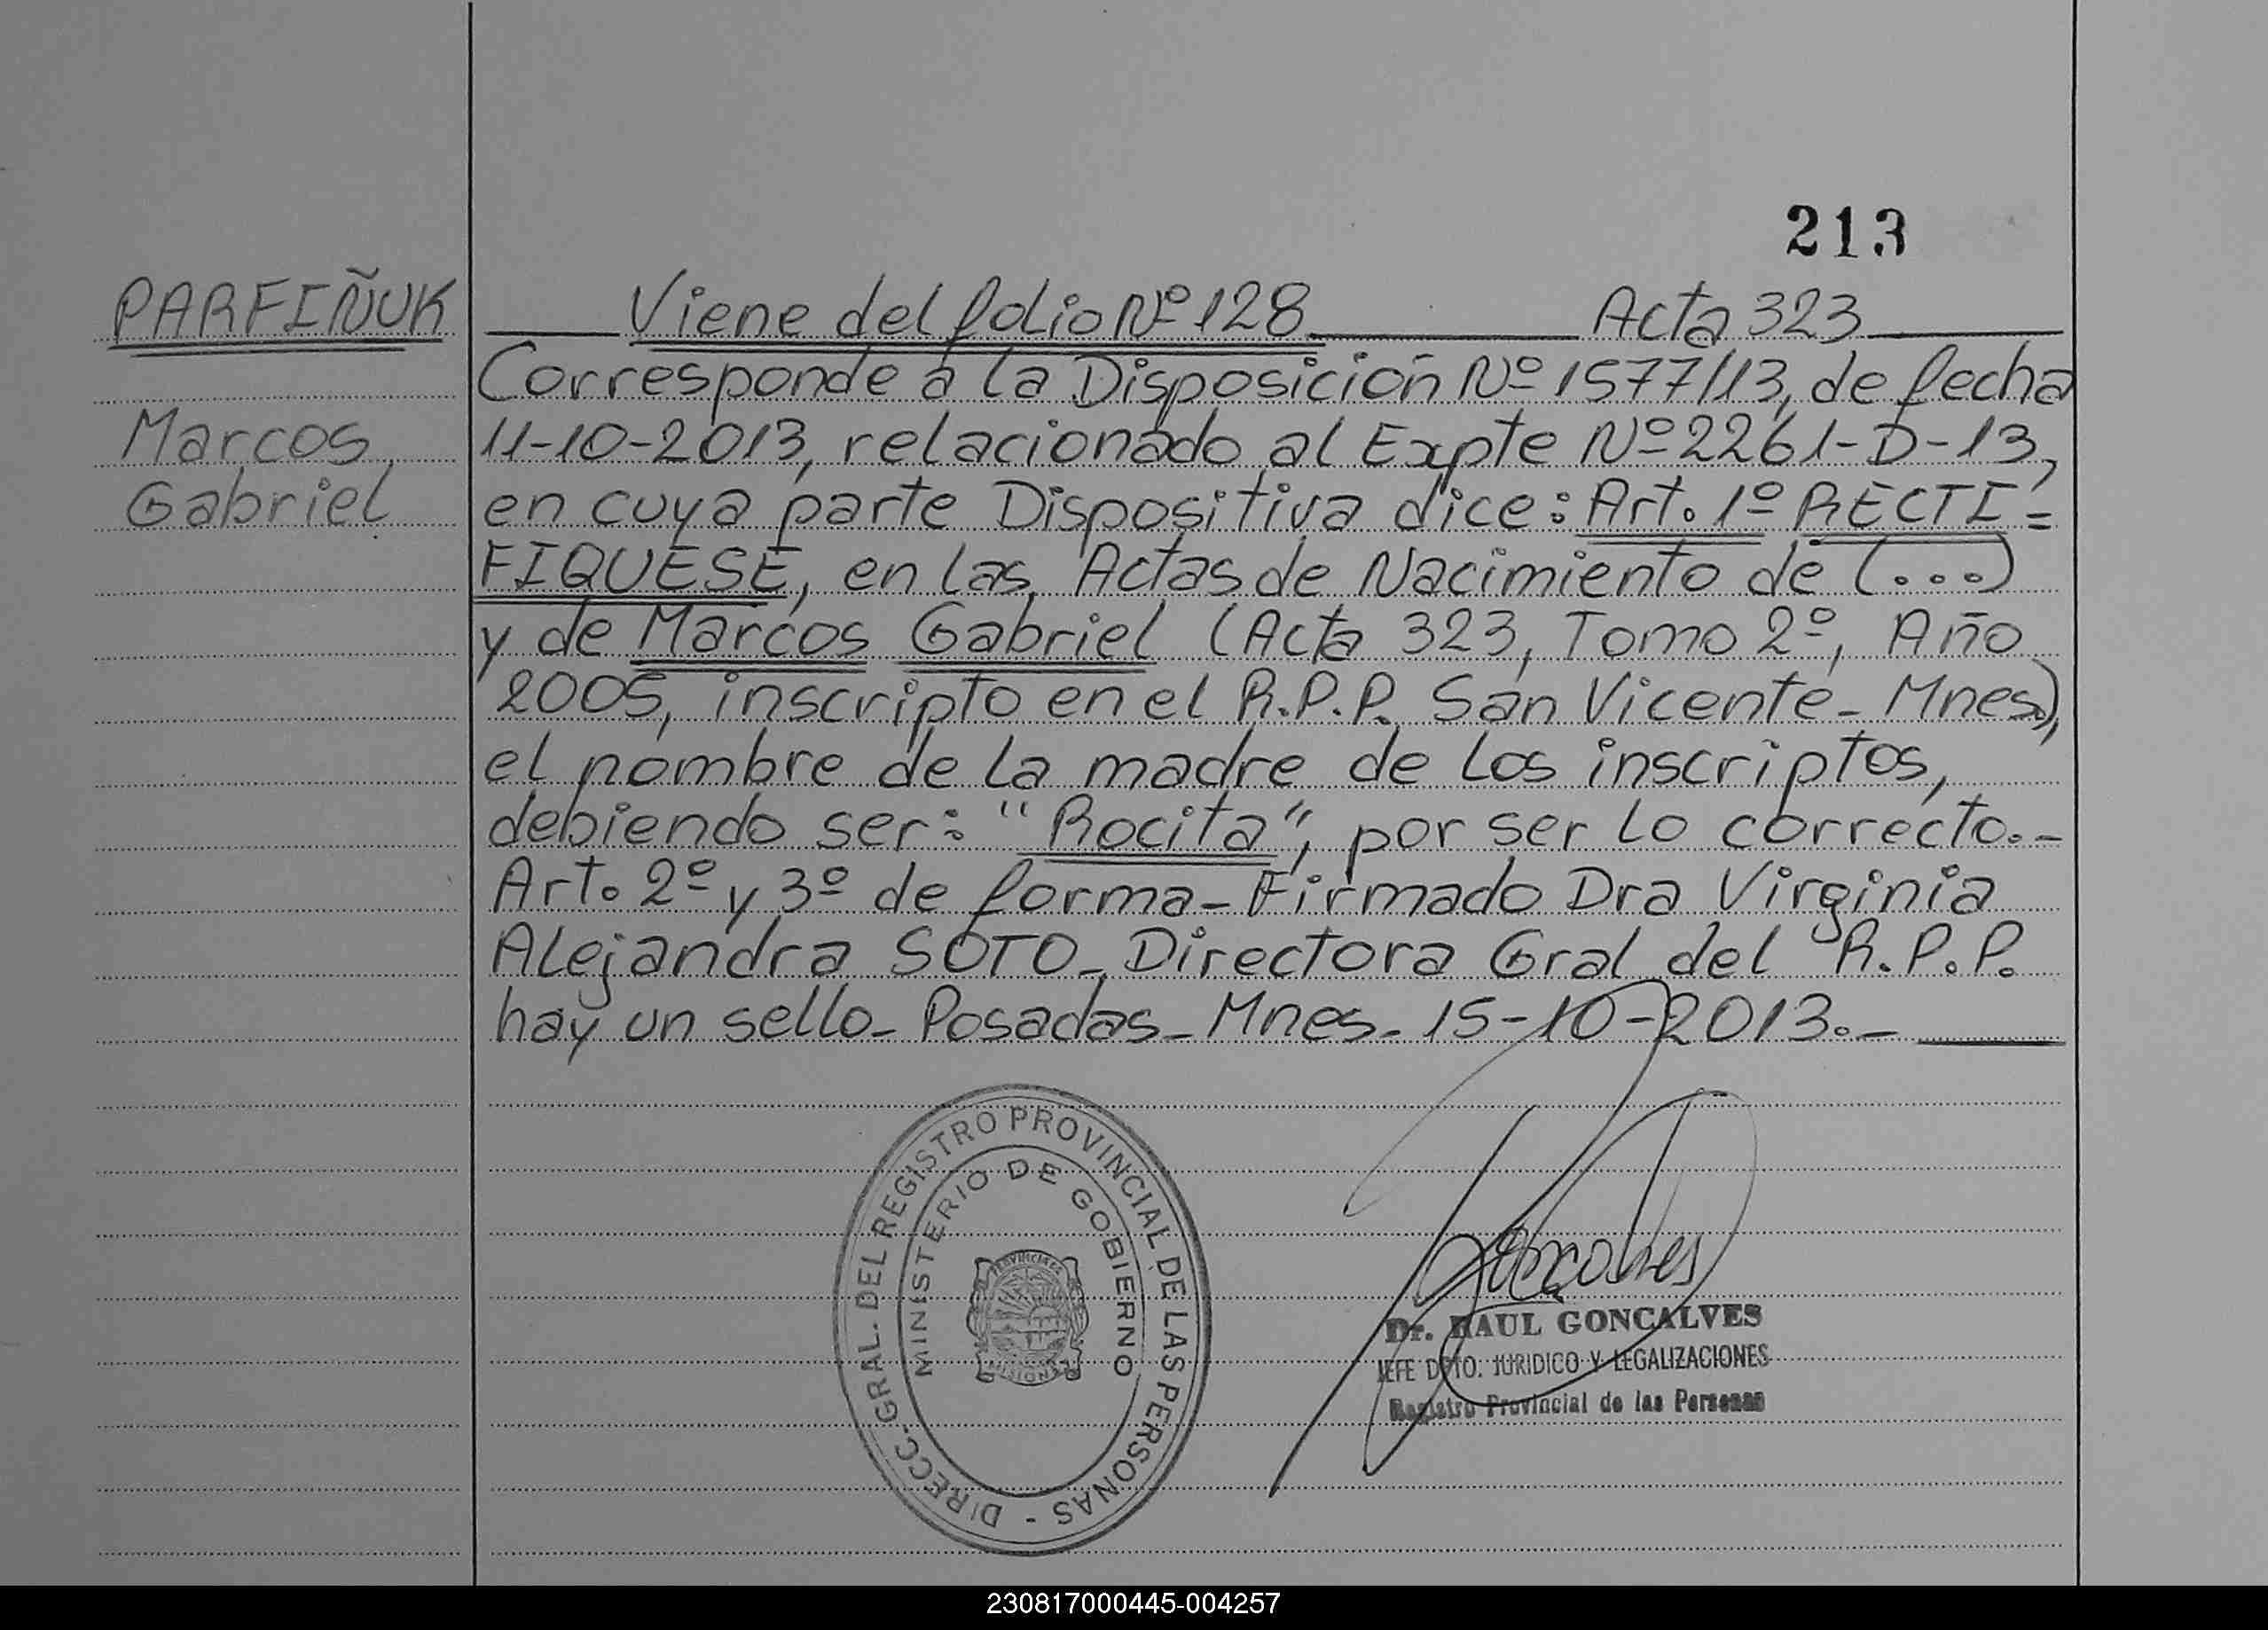 213
PARFIÑUK
Marcos
Gabriel
Viene del folio Nº 128 Acta 323
Corresponde a la Disposición Nº 1577/13, de fecha
11-10-2013, relacionado al Expte Nº 2261-D-13,
en cuya parte Dispositiva dice: Art. 1º RECTI=
FIQUESE, en las Actas de Nacimiento de (...)
y de Marcos Gabriel (Acta 323, Tomo 2º, Año
2005, inscripto en el R.P.P. San Vicente-Mnes),
el nombre de la madre de los inscriptos,
debiendo ser: "Rocita", por ser lo correcto.-
Art. 2º y 3º de forma-Firmado Dra Virginia
Alejandra SOTO-Directora Gral del R.P.P.
hay un sello-Posadas-Mnes-15-10-2013.-
DIRECC. GRAL. DEL REGISTRO PROVINCIAL DE LAS PERSONAS -
MINISTERIO DE GOBIERNO
PROVINCIA DE
MISIONES
Goncalves
Dr. RAUL GONCALVES
JEFE DPTO. JURIDICO Y LEGALIZACIONES
Registro Provincial de las Personas
230817000445-004257